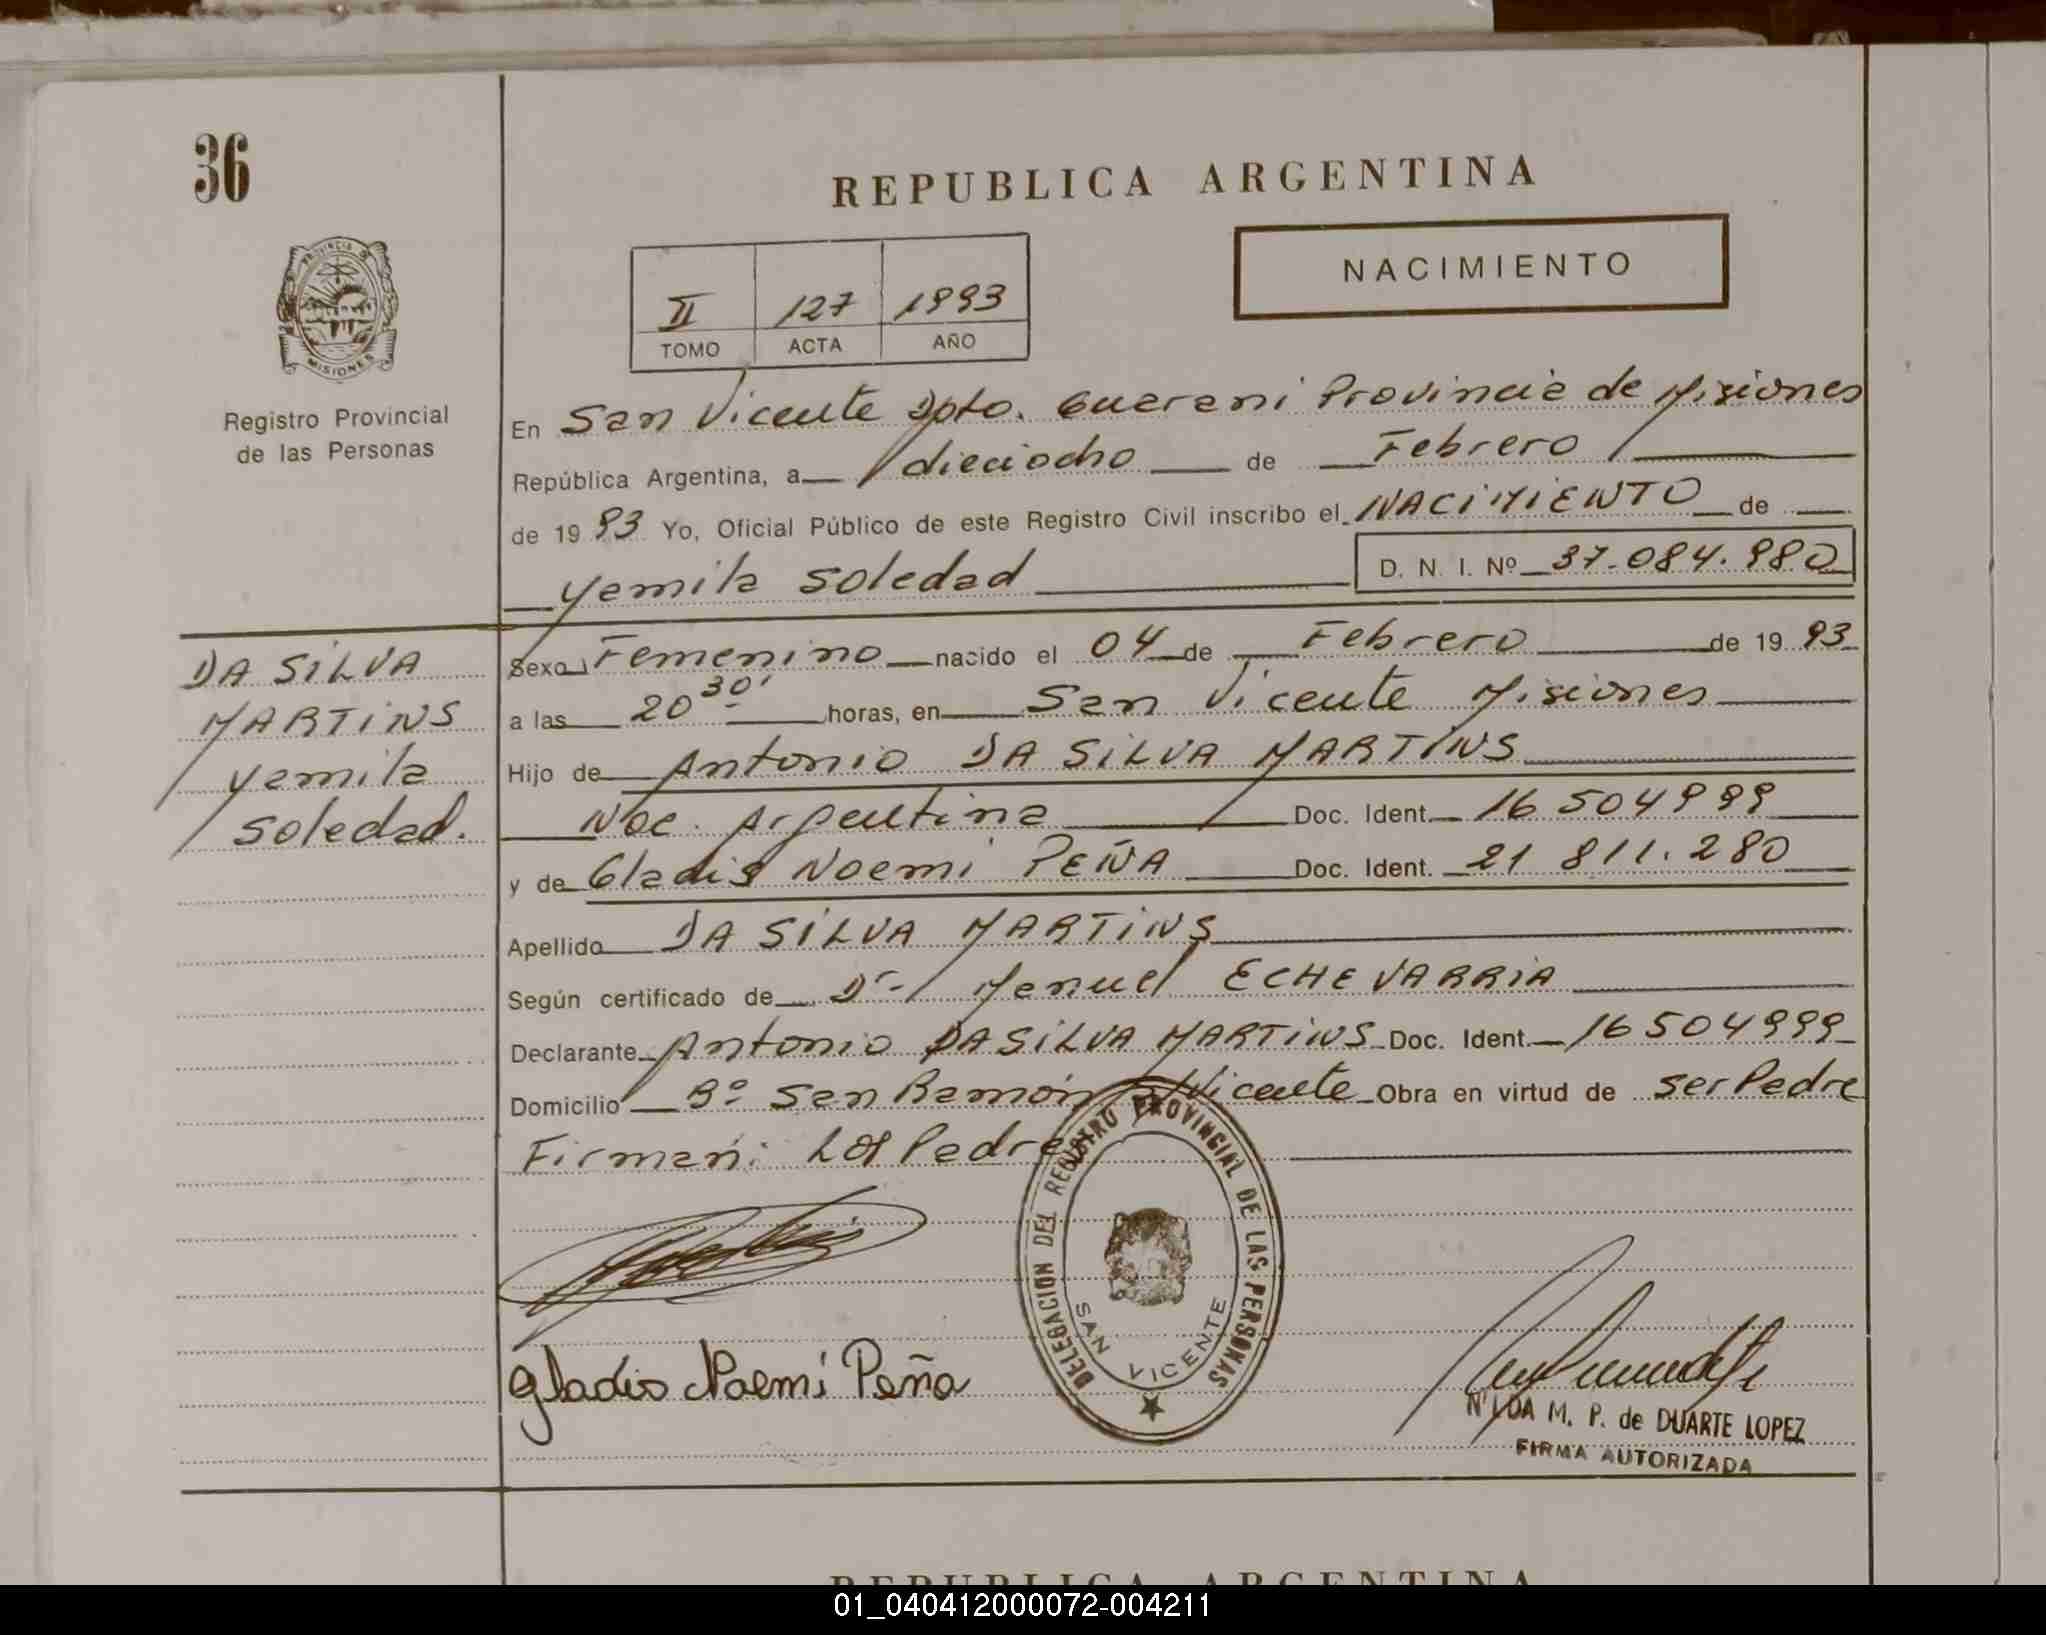 36
REPUBLICA ARGENTINA
NACIMIENTO
II 127 1993
TOMO ACTA AÑO
PROVINCIA DE MISIONES
Registro Provincial
de las Personas
En San Vicente Dpto. Guarani Provincia de Misiones
República Argentina, a dieciocho de Febrero
de 1993 Yo, Oficial Público de este Registro Civil inscribo el NACIMIENTO de
Yamila Soledad D. N. I. Nº 37.084.980
DA SILVA
MARTINS
Yamila
Soledad.
Sexo Femenino nacido el 04 de Febrero de 1993
a las 20 30' horas, en San Vicente Misiones
Hijo de Antonio DA SILVA MARTINS
Nac. Argentina Doc. Ident. 16 504999
y de Gladis Noemi PEÑA Doc. Ident. 21 811.280
Apellido DA SILVA MARTINS
Según certificado de Dr. Manuel ECHEVARRIA
Declarante Antonio DA SILVA MARTINS Doc. Ident. 16 504999
Domicilio Bº San Ramón Vicente Obra en virtud de ser Padre
Firman: Los Padres
DELEGACION DEL REGISTRO PROVINCIAL DE LAS PERSONAS
SAN VICENTE
Gladis Noemí Peña
NILDA M. P. de DUARTE LOPEZ
FIRMA AUTORIZADA
REPUBLICA ARGENTINA
01_040412000072-004211